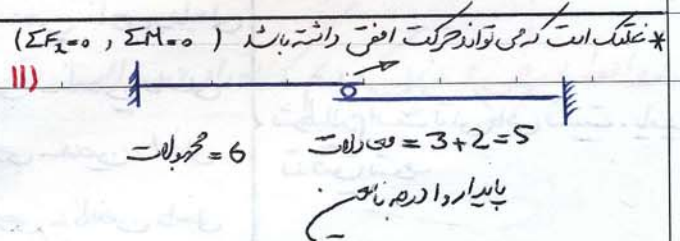 * غلتک است که می تواند حرکت افقی داشته باشد ( ΣM=0 , ΣFx=0 )
11)
مجهولات = 6 معادلات = 3+2=5
پایدار و ۱ درجه نامعین